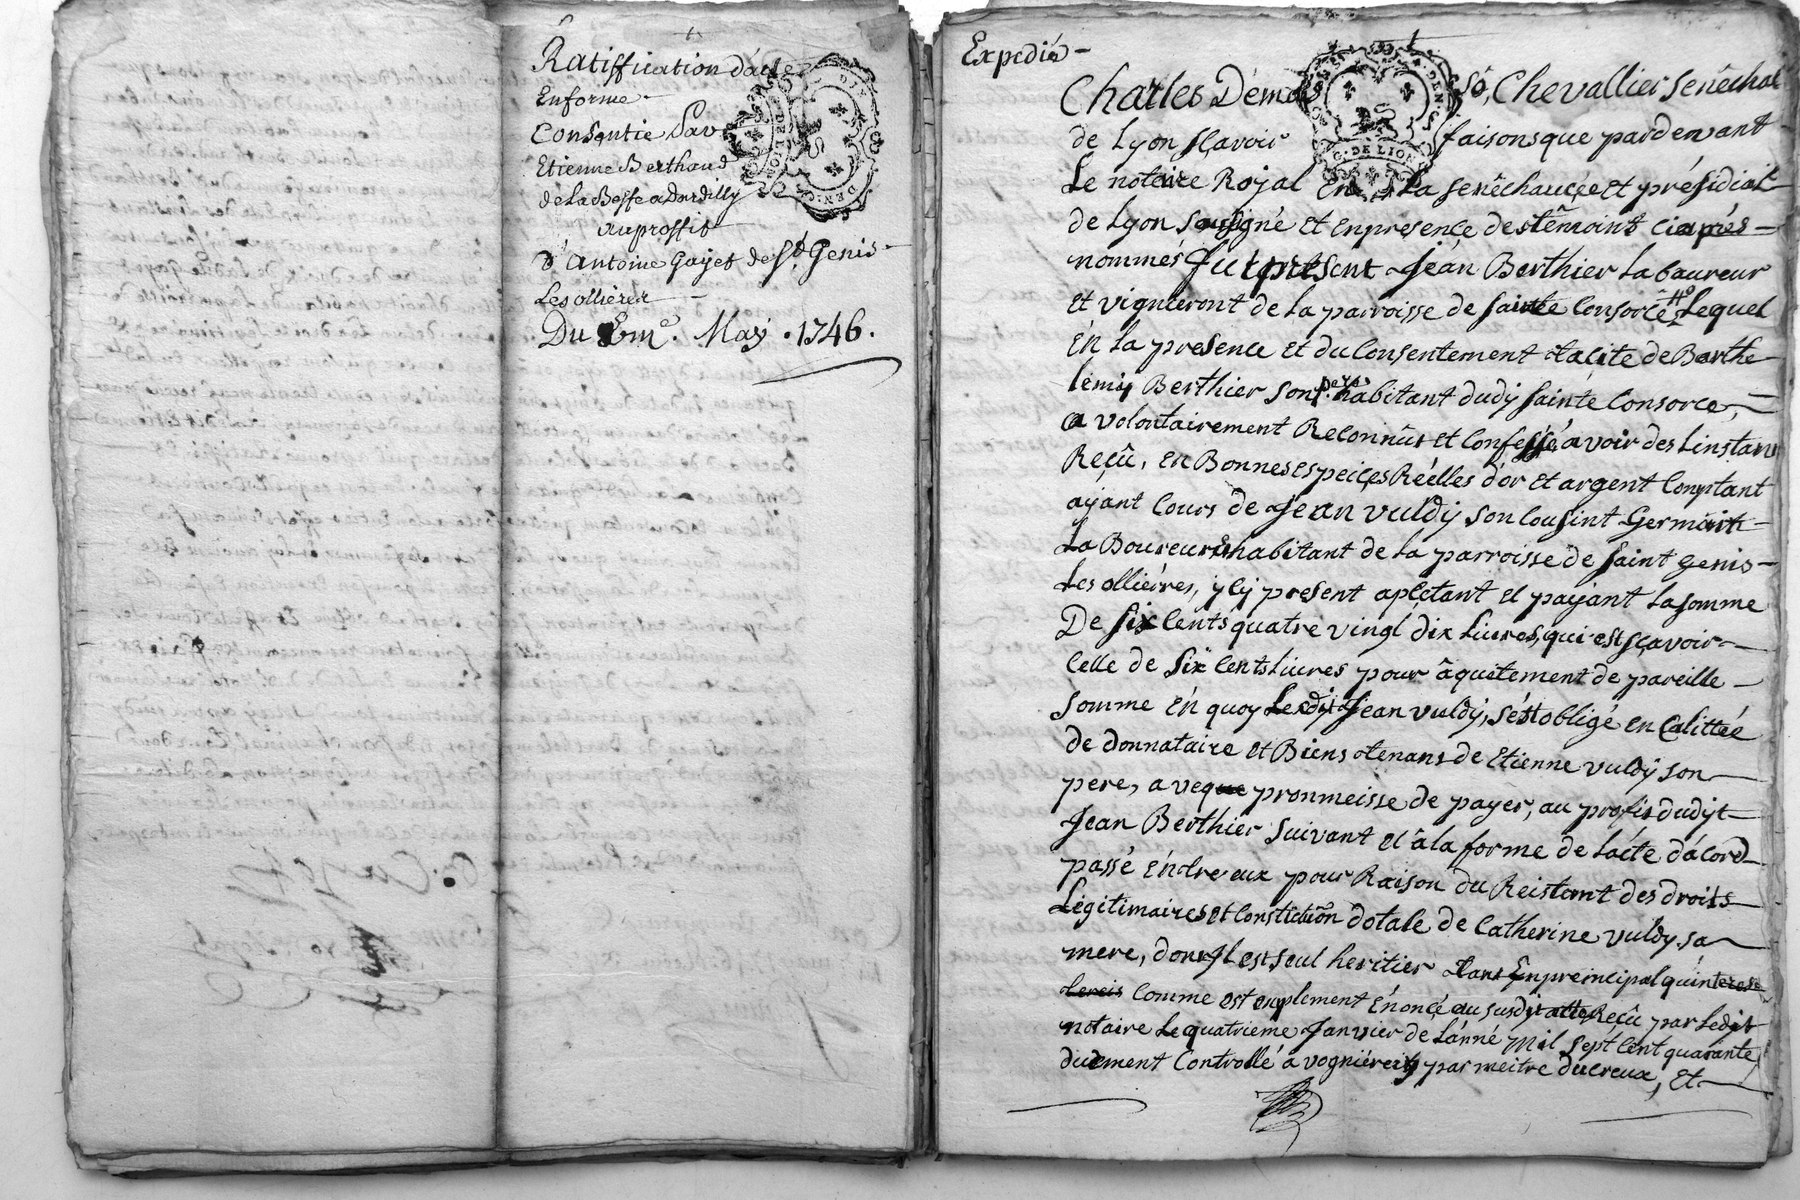 Ratiffication d'acte
Enforme
Consentie Par
Etienne Berthaud
de La Beffe a Dardilly
auproffit
d'Antoine Gayet de St. Genis
Les ollieres
Du 8me. May . 1746.
Expedié
Charles Demasso, Chevallier Senêchal
de Lyon sçavoir faisons que pardevant
Le notaire Royal En La senêchaucée et présidial
de Lyon sousigné et enpresence des têmoint ciaprés
nommés fut present Jean Berthier Laboureur
et vigneront de la parroisse de Sainte Consorce Lequel
En la presence et du Consentement tacite de Barthe
lemy Berthier son pere habitant dudy Sainte Consorce,
a volontairement Reconnût et Confessé avoir des Linstant
Reçû, en Bonnes espeices Réelles d'or et argent Comptant
ayant Cours de Jean vuldy son Cousint Germain
La Boureur habitant de la parroisse de Saint Genis
Les ollieres, y cy present apletant et payant La somme
De Six Cents quatre vingt dix Livres, qui est sçavoir
Celle de Six Cents Livres pour âquitement de pareille
Somme En quoy Ledit Jean vuldy, s'est obligé en Calittée
de donnataire et Biens tenans de Etienne vuldy son
pere, aveque pronmeisse de payer, au profit dudyt
Jean Berthier suivant et â la forme de L'acte d'âcord
passé Entre eux pour Raison du Reistant des droits
Légitimaires et Constitution dotale de Catherine vuldy sa
mere, dont Il est seul heritier tant En preincipal quinterest
Comme est enplement Enoncé au susdyt acte Reçû par Ledit
notaire Le quatrieme Janvier de L'anné mil sept Cent quarante
duement Controllé a vogniéreis par meitre ducreux, et